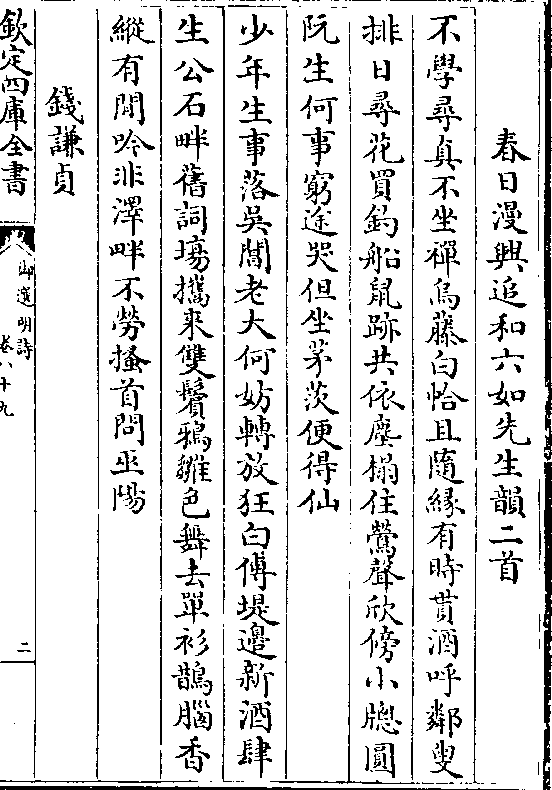 春日漫興追和六如先生韻二首
不學尋真不坐禪烏藤白恰且隨緣有時貰酒呼鄰叟
排日尋花買釣船鼠跡共依塵榻住鶯聲欣傍小牕圓
阮生何事窮途哭但坐茅茨便得仙
少年生事落吳閶老大何妨轉放狂白傅堤邊新酒肆
生公石畔舊詞場攜來雙鬢鴉雛色舞去單衫鵲腦香
縱有閒吟非澤畔不勞搔首問巫陽
錢謙貞
欽定四庫全書
御選明詩
卷八十九
二